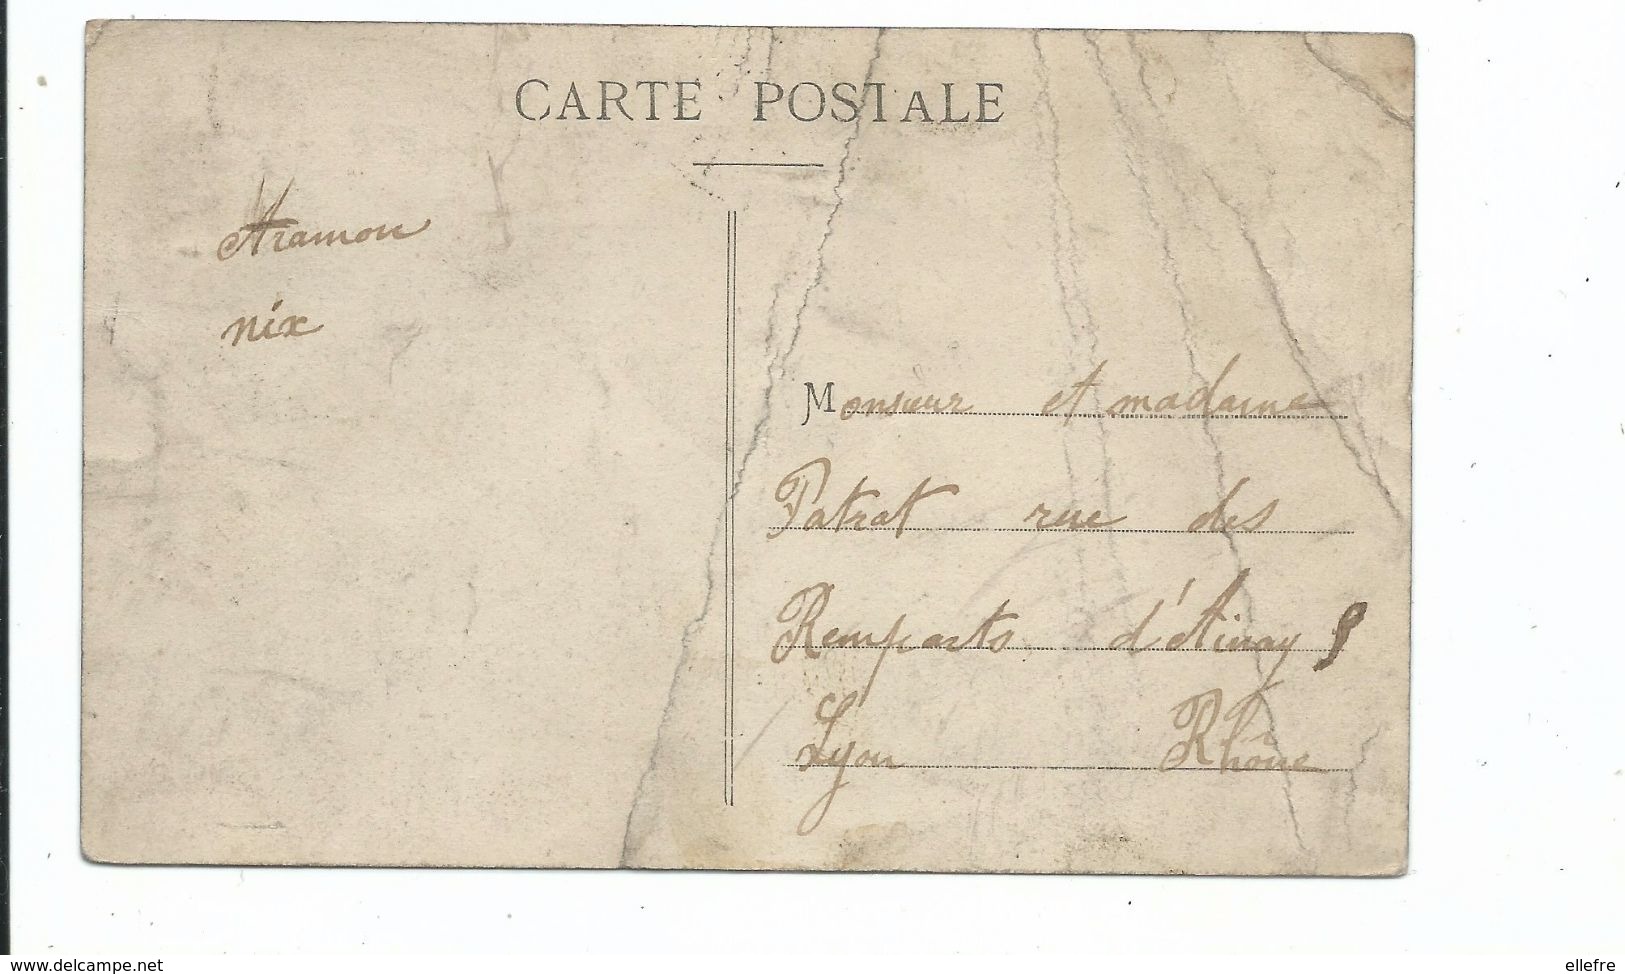 CARTE POSTALE
Aramon
nix
Monsieur et madame
Patrat rue des
Remparts d'Ainay 9
Lyon Rhône
www.delcampe.net
ellefre